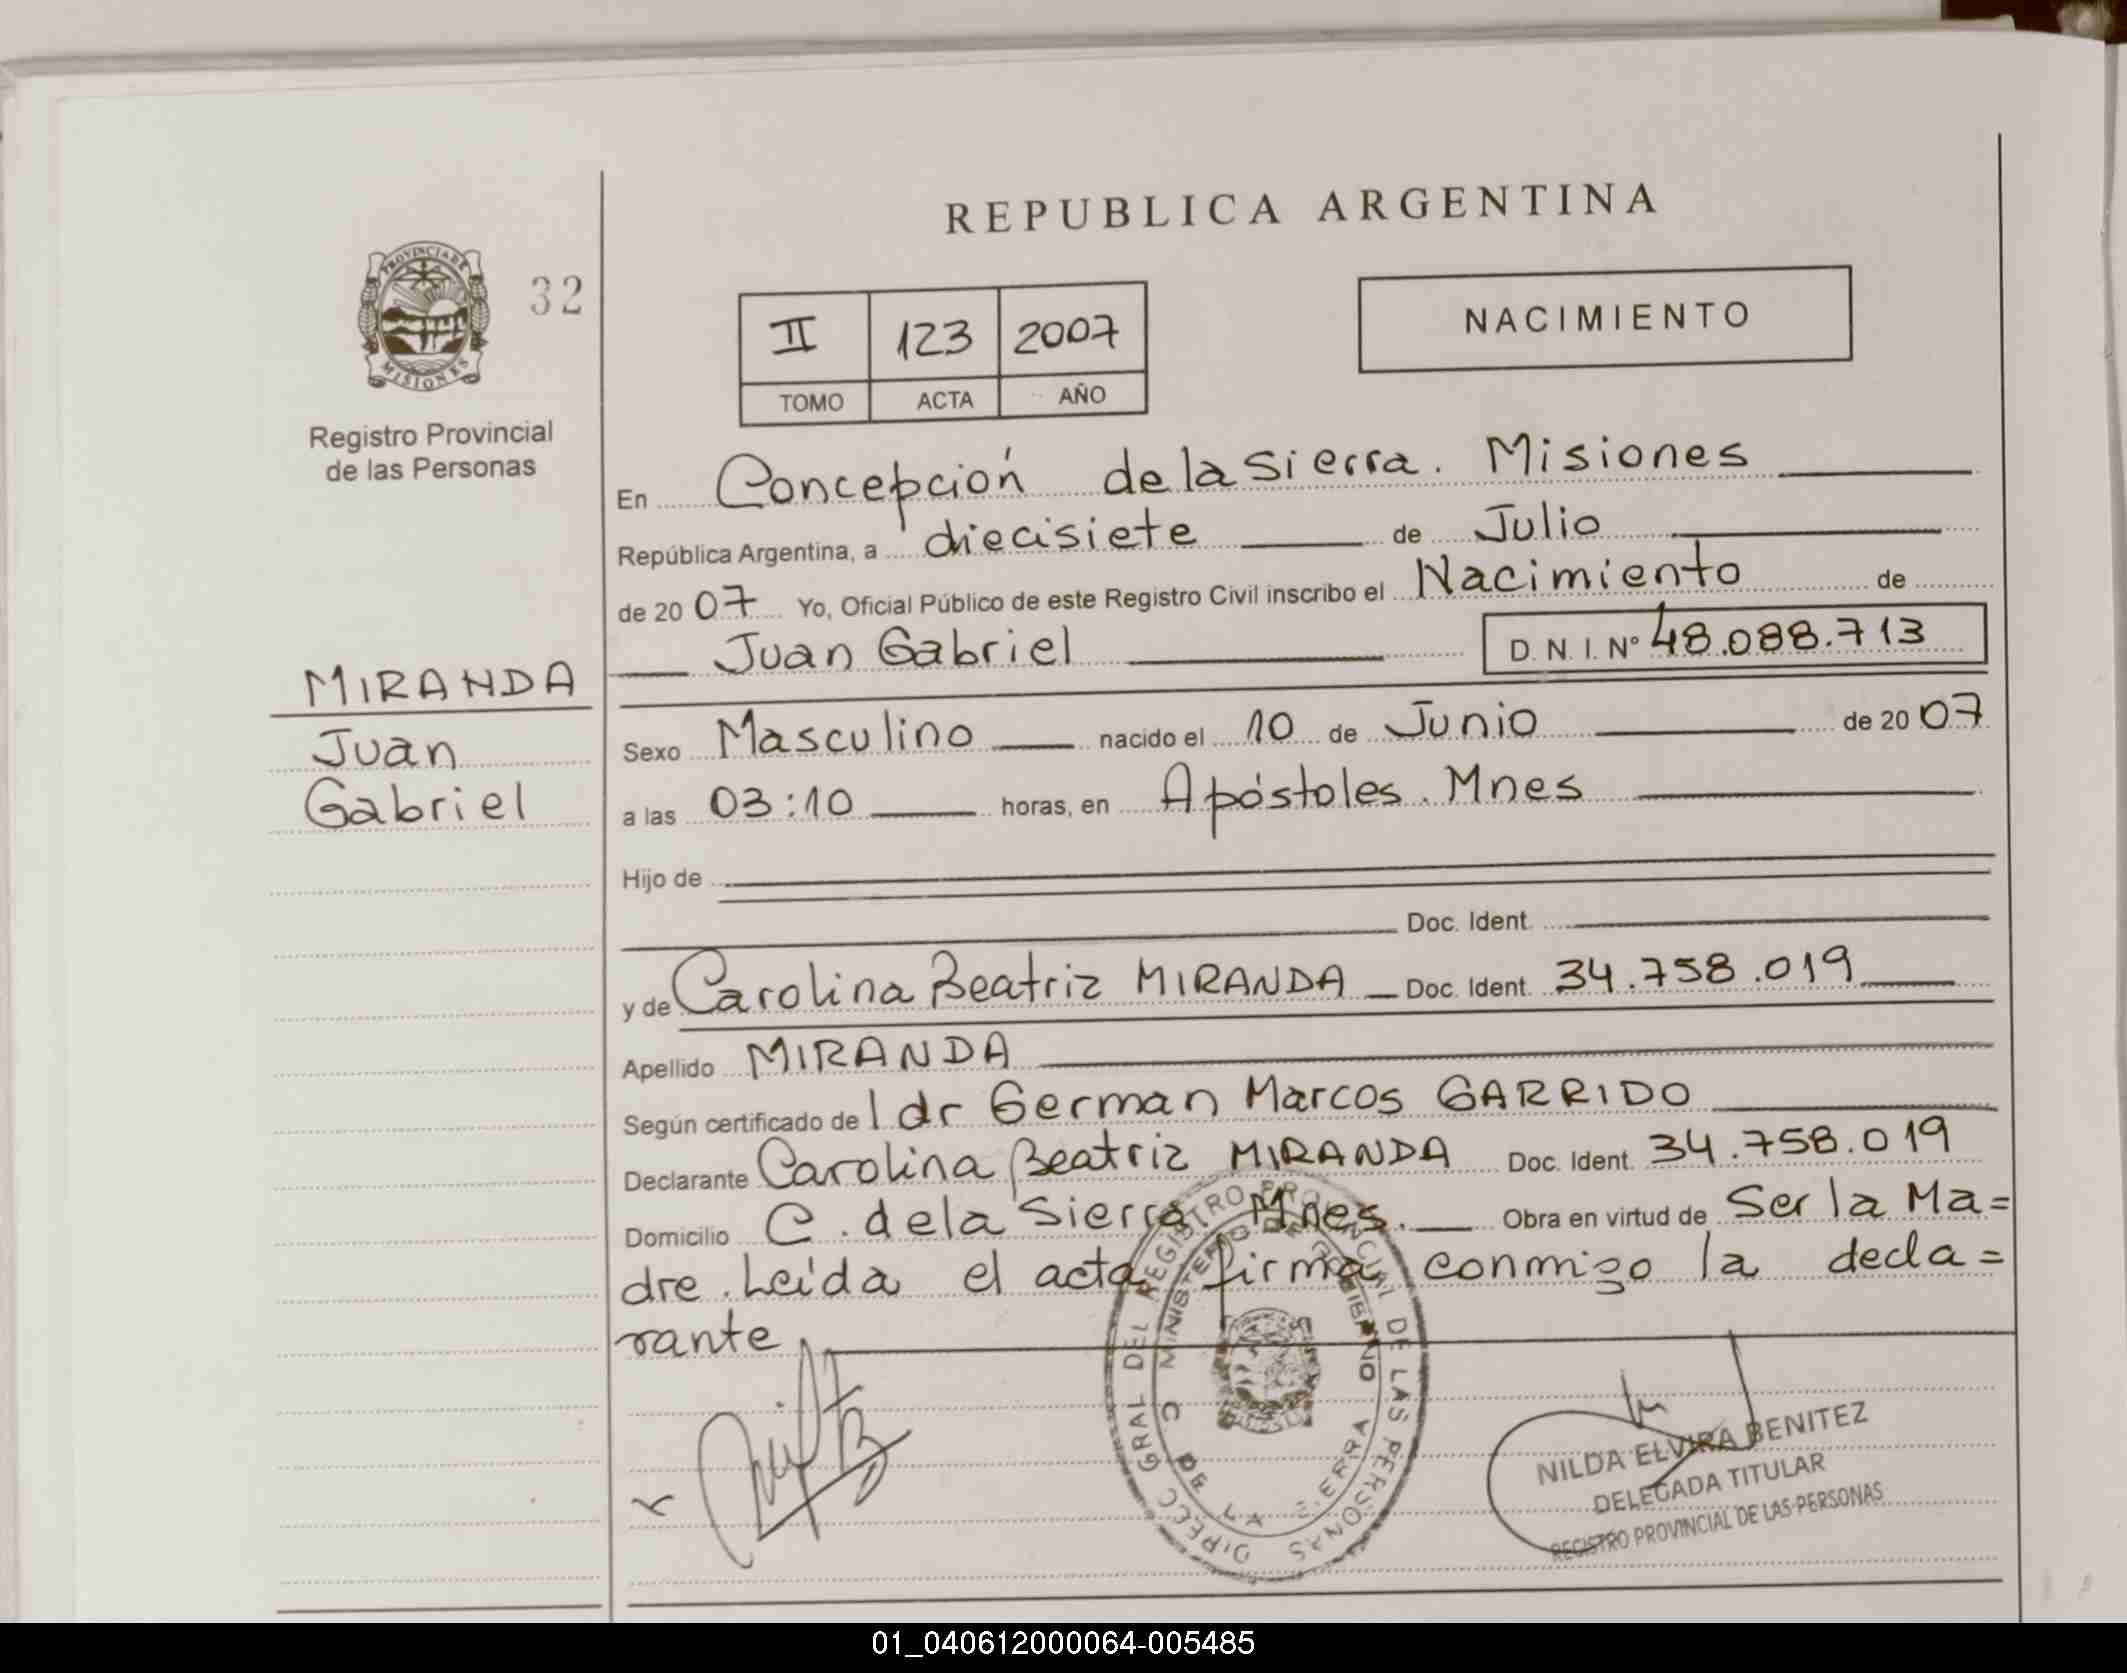 REPUBLICA ARGENTINA
PROVINCIA DE
MISIONES
32
Registro Provincial
de las Personas
II 123 2007
TOMO ACTA AÑO
NACIMIENTO
MIRANDA
Juan
Gabriel
En Concepción de la Sierra. Misiones
República Argentina, a diecisiete de Julio
de 2007 Yo, Oficial Público de este Registro Civil inscribo el Nacimiento de
Juan Gabriel D. N. I. Nº 48.088.713
Sexo Masculino nacido el 10 de Junio de 2007
a las 03:10 horas, en Apóstoles. Mnes
Hijo de
Doc. Ident.
y de Carolina Beatriz MIRANDA Doc. Ident. 34.758.019
Apellido MIRANDA
Según certificado de l dr German Marcos GARRIDO
Declarante Carolina Beatriz MIRANDA Doc. Ident. 34.758.019
Domicilio C. de la Sierra Mnes. Obra en virtud de Ser la Ma=
dre. Leída el acta firma conmigo la decla=
rante
DIRECC GRAL DEL REGISTRO PROVINCIAL DE LAS PERSONAS
MINISTERIO DE GOBIERNO
C DE LA SIERRA
NILDA ELVIRA BENITEZ
DELEGADA TITULAR
REGISTRO PROVINCIAL DE LAS PERSONAS
01_040612000064-005485